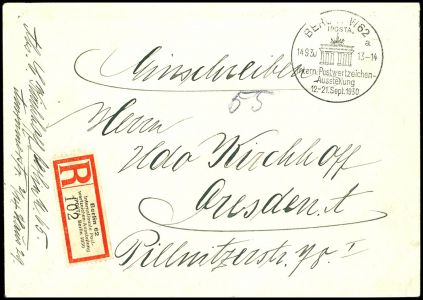 BERLIN W62
IPOSTA
a
14.9.30 13-14
Intern. Postwertzeichen-
Ausstellung
12.-21. Sept. 1930
Einschreiben
55
Herrn
Udo Kirchhoff
Dresden A
Pillnitzerstr. 70 I
R
Berlin 62
Internationale Post-
wertzeichen-Ausstellung
Berlin 1930
102